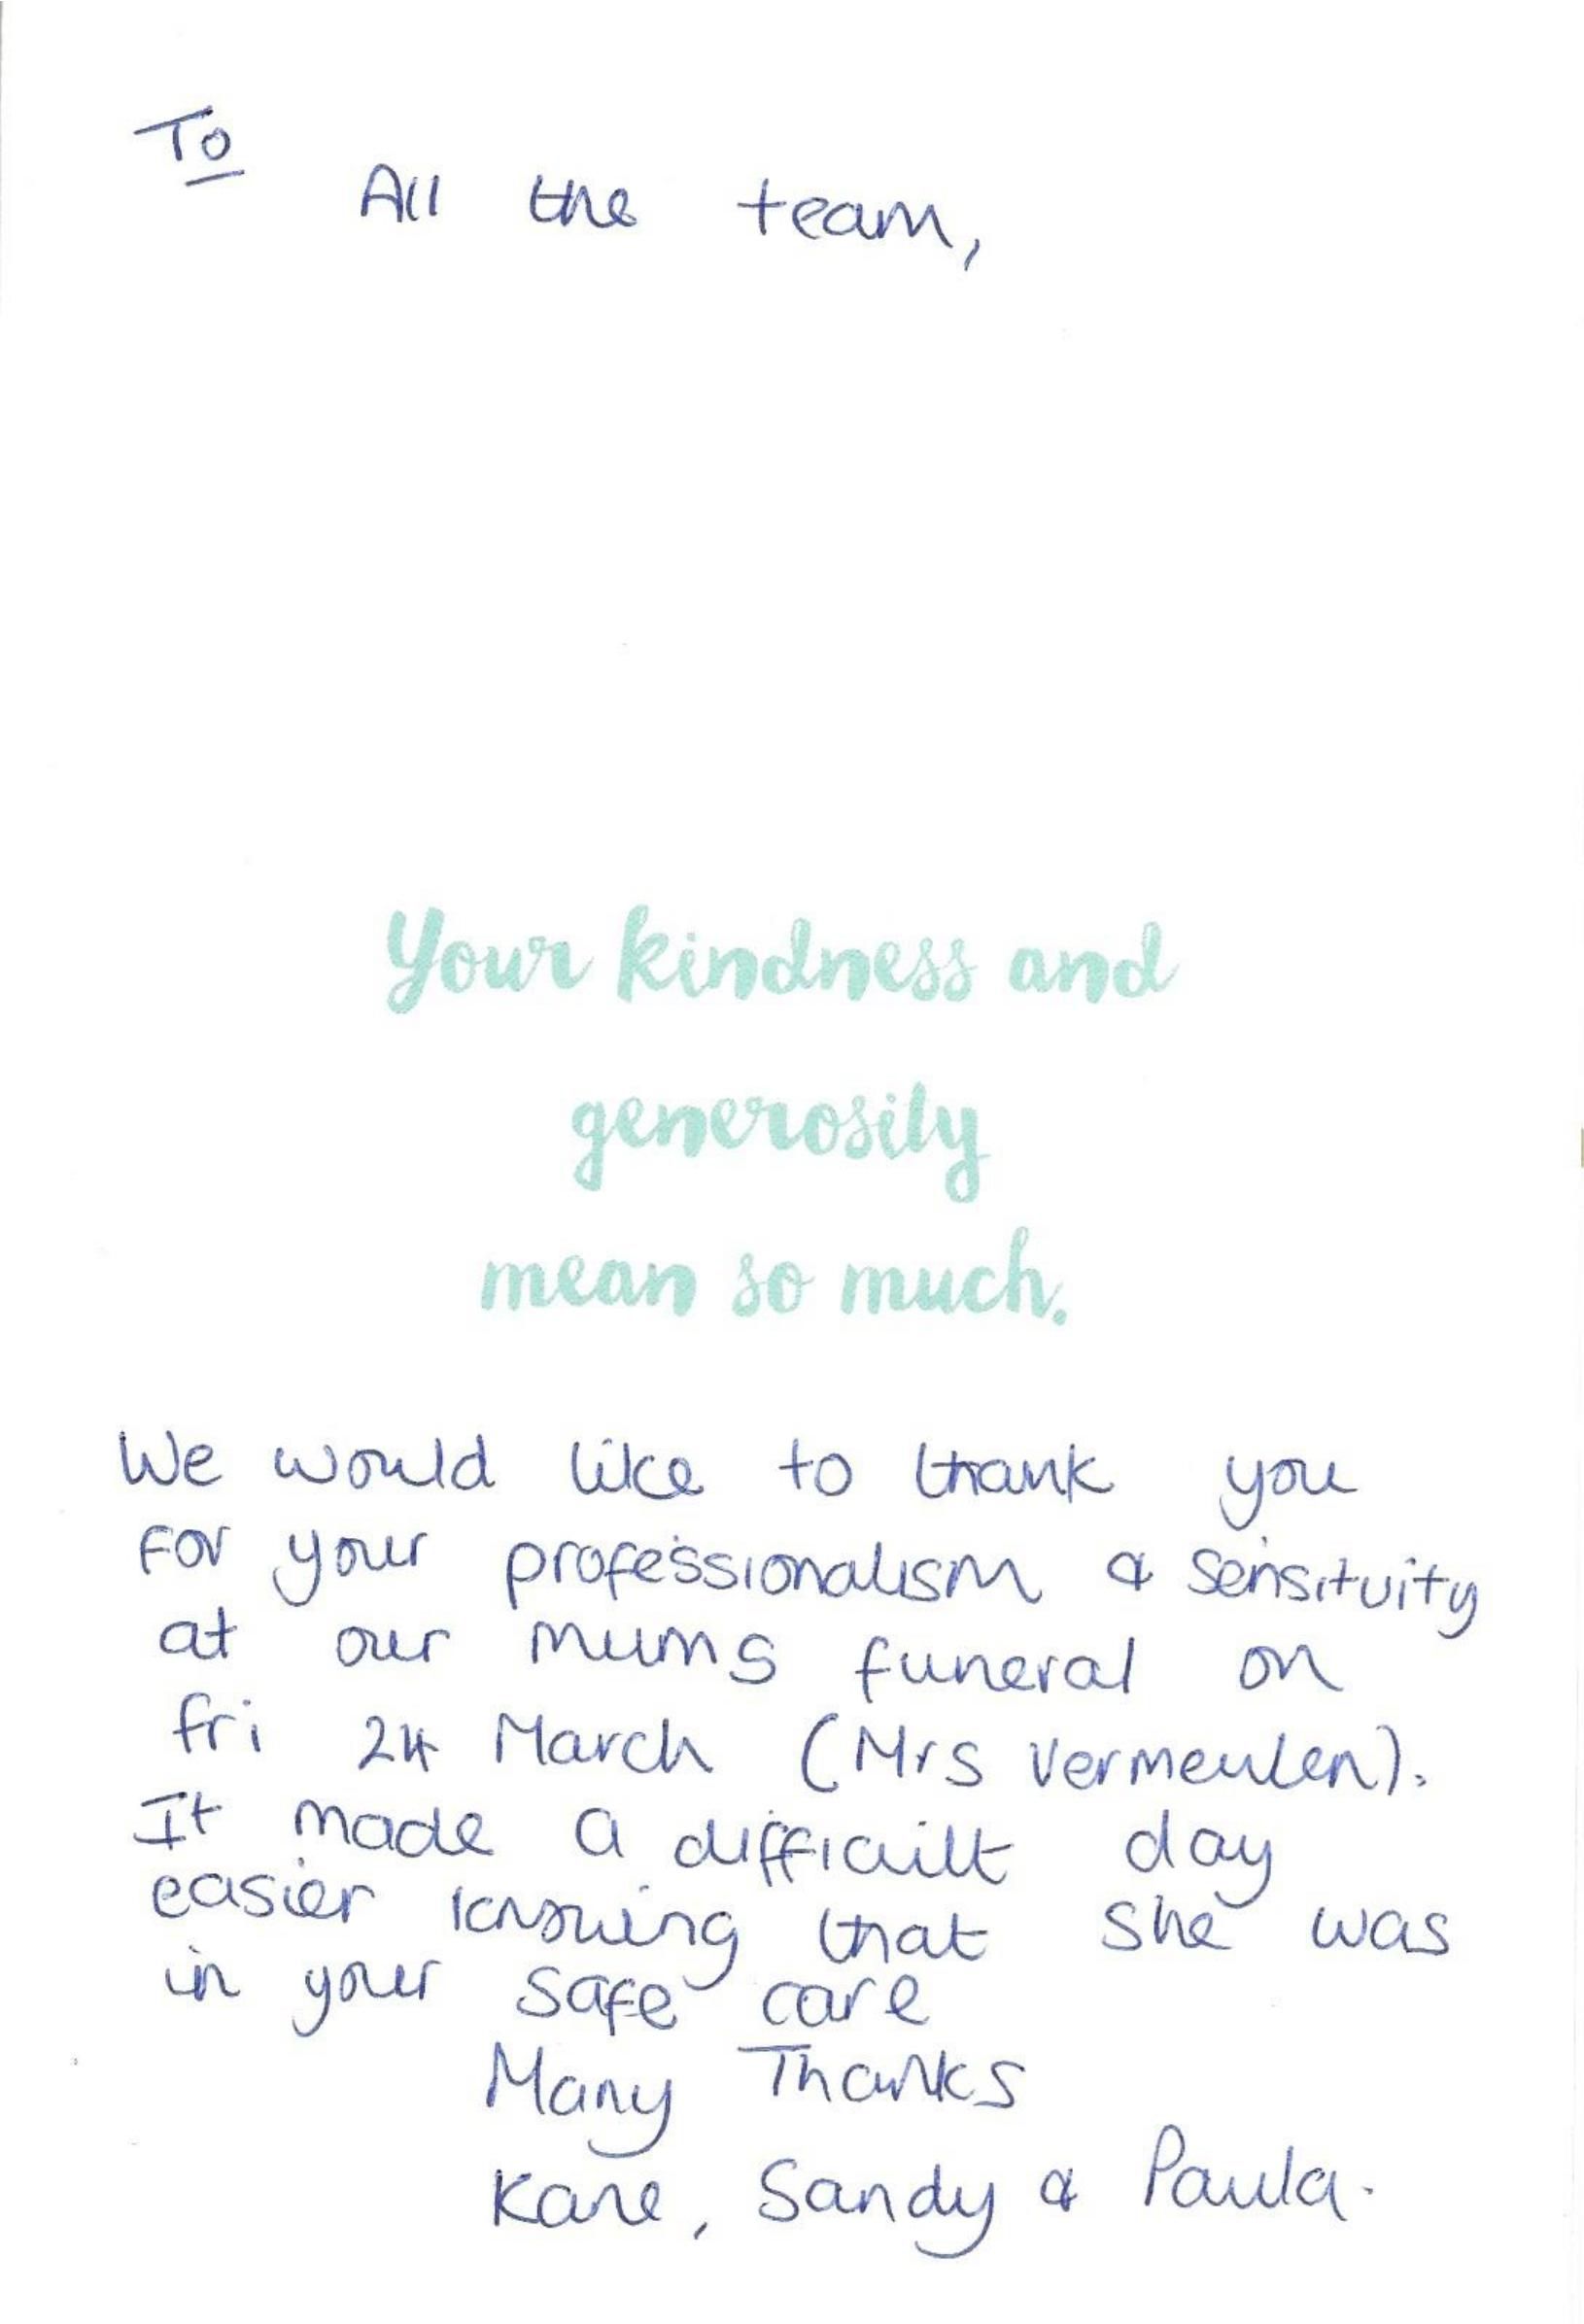 To
All the team,
Your kindness and
generosity
mean so much.
We would like to thank you
for your professionalism & sensitivity
at our mums funeral on
fri 24 March (Mrs Vermeulen).
It made a difficult day
easier knowing that she was
in your safe care
Many Thanks
Kane, Sandy & Paula.